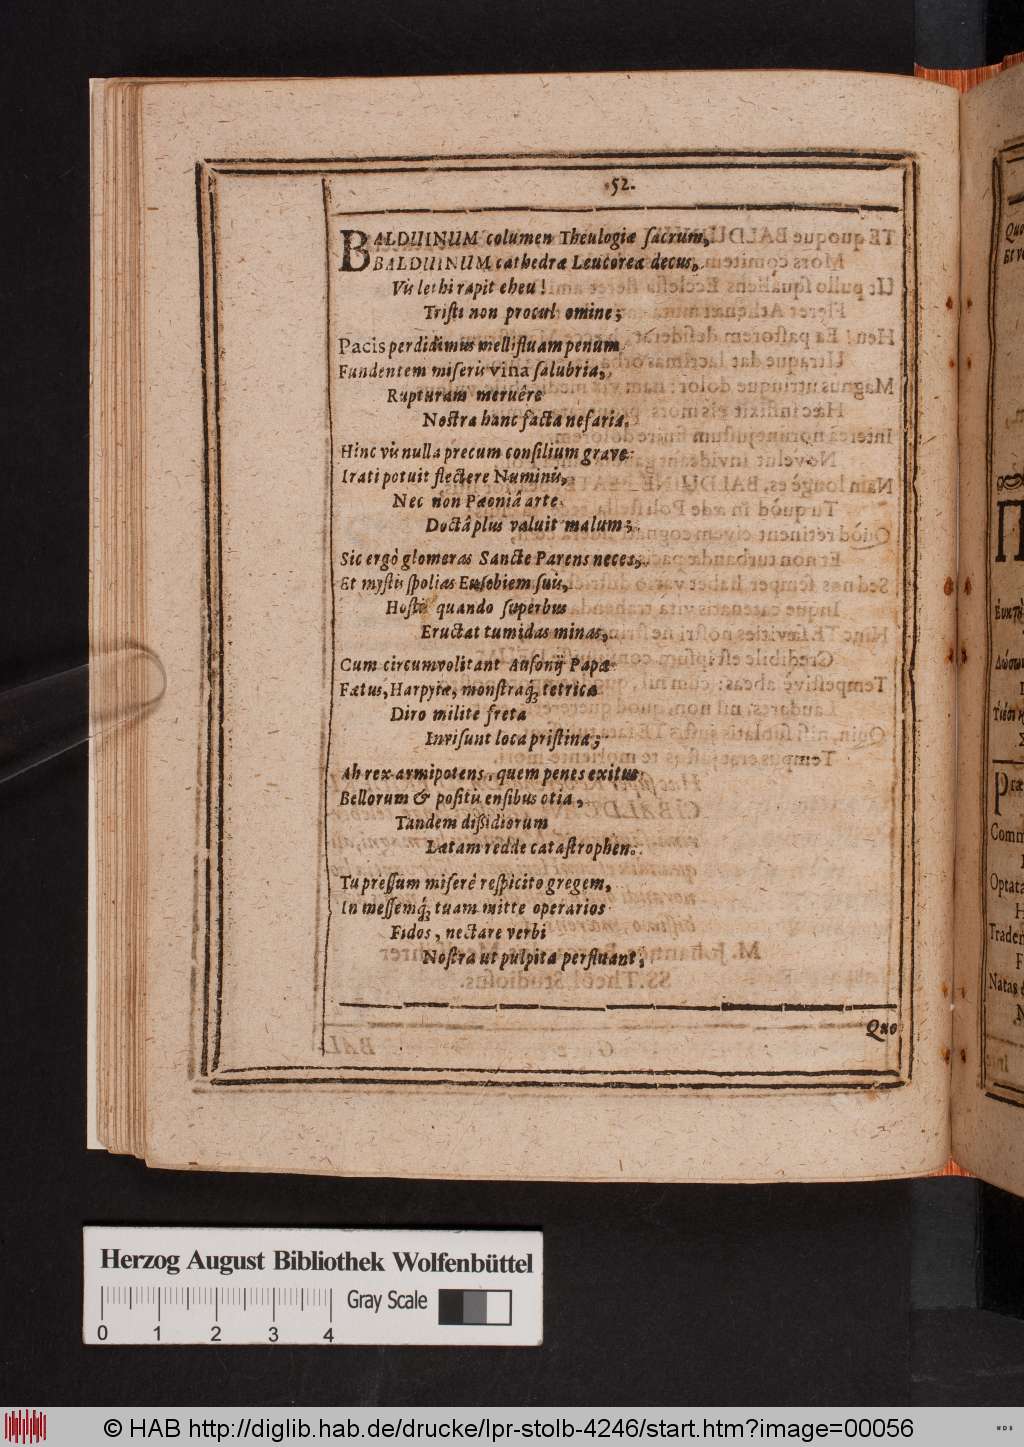 52.
BALDUINUM columen Theulogiæ sacrum,
BALDUINUM cathedræ Leucoreæ decus,
Vis lethi rapit eheu!
Tristi non procul omine;
Pacis perdidimus mellifluam penum
Fundentem miseris vina salubria,
Rupturam meruêre
Nostra hanc facta nefaria.
Hinc vis nulla precum consilium grave
Irati potuit flectere Numinis,
Nec non Pæoniâ arte
Doctâ plus valuit malum;
Sic ergò glomeras Sancte Parens neces,
Et mystis spolias Eusebiem suis,
Hostis quando superbus
Eructat tumidas minas,
Cum circumvolitant Ausonij Papæ
Fœtus, Harpyiæ, monstraq́; tetrica
Diro milite freta
Invisunt loca pristina;
Ah rex armipotens, quem penes exitus
Bellorum & positis ensibus otia,
Tandem dißidiorum
Lætam redde catastrophen.
Tu pressum miserè respicito gregem,
In messemq́; tuam mitte operarios
Fidos, nectare verbi
Nostra ut pulpita perfluant;
Quo
Herzog August Bibliothek Wolfenbüttel
Gray Scale
0 1 2 3 4
© HAB http://diglib.hab.de/drucke/lpr-stolb-4246/start.htm?image=00056